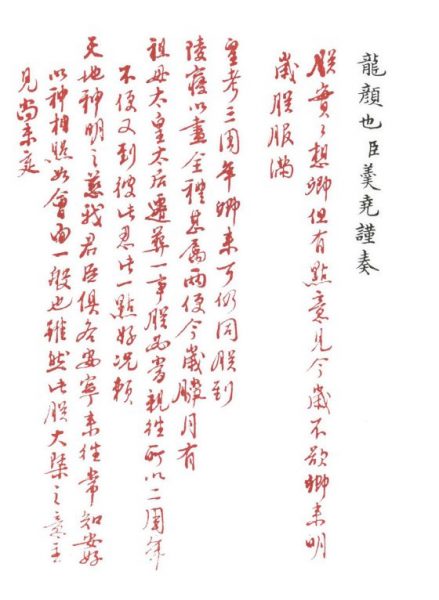 龍顏也臣羹堯謹奏
朕實々想卿但有點意見今歲不欲卿來明
歲朕服滿
皇考三周年卿來可仍同朕到
陵寢以盡全禮甚属兩便今歲臘月有
祖母太皇太后遷葬一事朕必當親往所以二周年
不便又到彼此忍此一點好況賴
天地神明之慈我君臣俱各安寧來往常知安好
以神相照如會面一般也雖然此朕大槩之意主
見尚未定